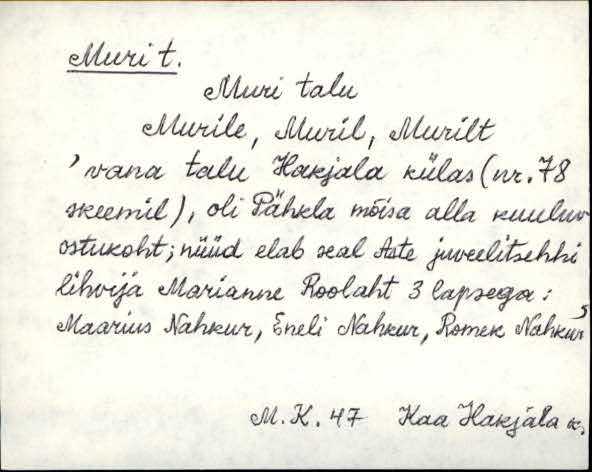 Muri t.
Muri talu
Murile, Muril, Murilt
’vana talu Hakjala külas (nr. 78
skeemil), oli Pähkla mõisa alla kuuluv
ostukoht; nüüd elab seal Aste juveelitsehhi
lihvija Marianne Roolaht 3 lapsega:
Maarius Nahkur, Eneli Nahkur, Romek Nahkur’
M.K. 47 Kaa Hakjala k.